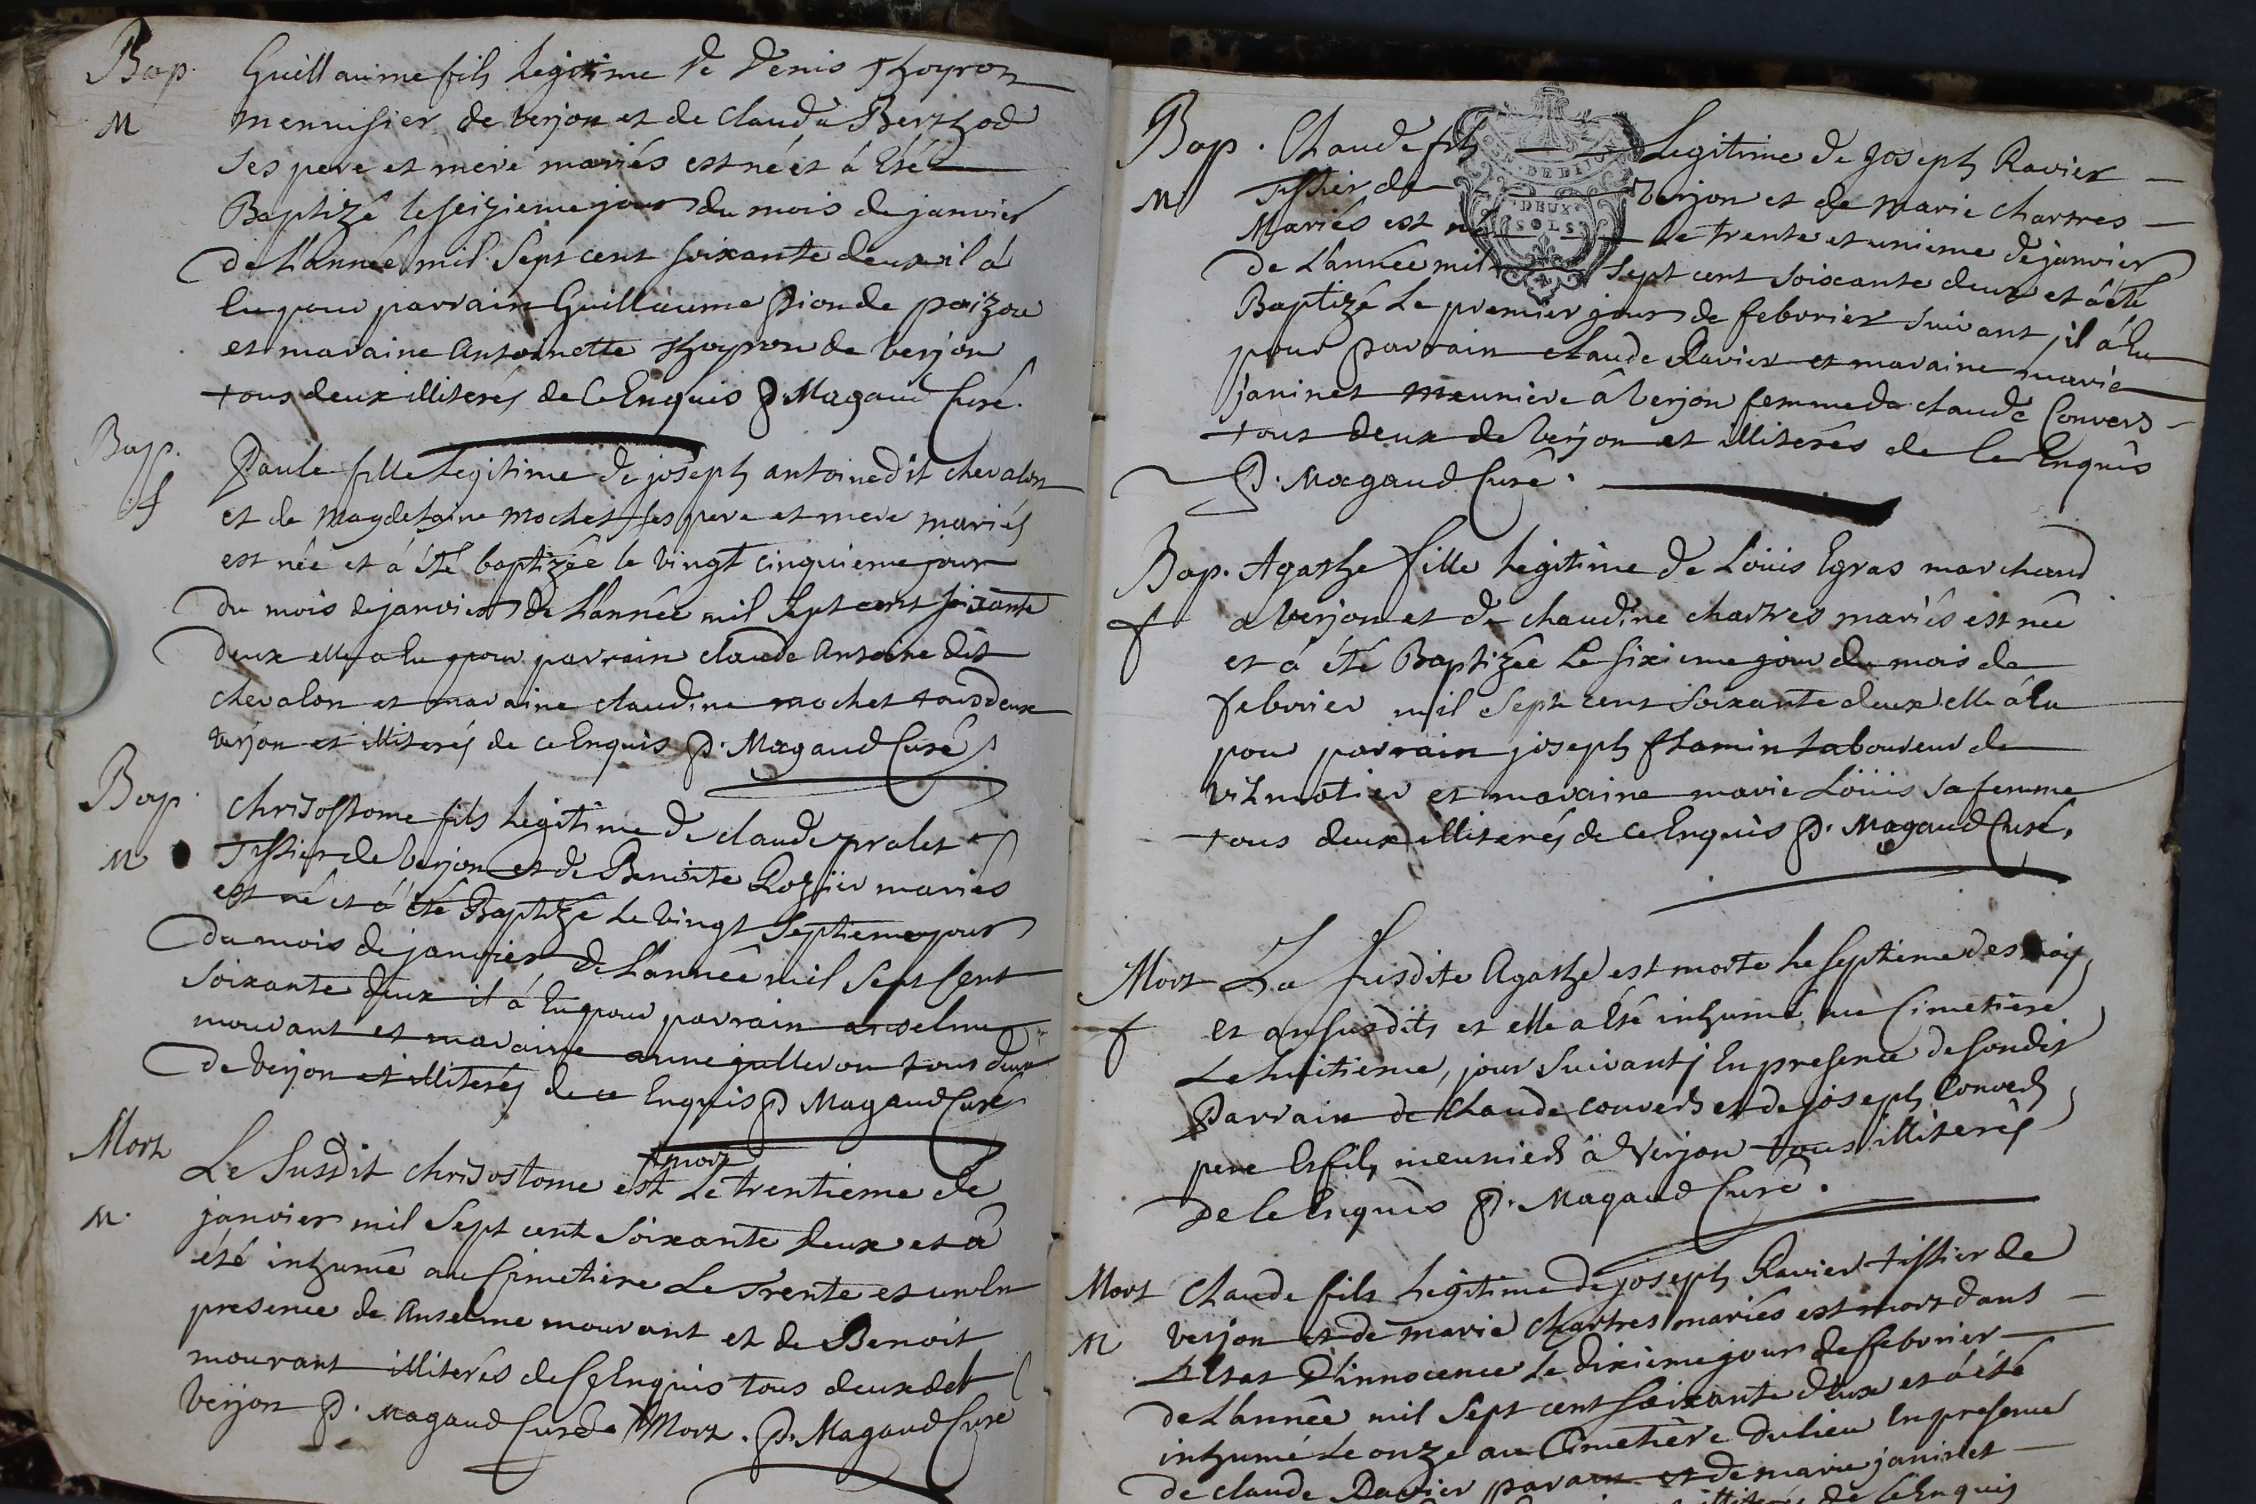 Bap. Guillaume fils legitime de denis Thoyron
M menuisier de verjon et de Clauda Berthod
ses pere et mere mariés est né et á Eté
Baptizé le seizieme jour du mois de janvier
de L'année mil sept cent soixante deux il á
Eu pour parrain Guillaume Pion de poizou
et maraine Antoinette Thoyron de verjon
tous deux illiterés de ce Enquis P. Magaud Curé.
Bap. Paule fille legitime de joseph antoine dit chevalon
f et de Magdelaine Mochet ses pere et mere mariés
est née et á été baptizée le vingt cinquieme jour
du mois de janvier de L'année mil sept cent soixante
deux elle a Eu pour parrain claude Antoine dit
chevalon et maraine claudine mochet tous deux
verjon et illiterés de ce Enquis P. Magaud Curé
Bap. Chrisostome fils legitime de claude pralet
M Tissier de verjon et de Benoite Rozier mariés
est né et á été Baptizé le vingt septieme jour
du mois de janvier de L'année mil sept Cent
soixante deux il á Eu pour parrain anselme
mourant et maraine anne julleron tous deux
de verjon et illiterés de ce Enquis P Magaud Curé
Mort Le Susdit chrisostome est +mort Le trentieme de
M. janvier mil sept cent soixante deux et á
été inhumé au Cimetiere Le Trente et un En
presence de Anselme mourant et de Benoit
mourant illiterés de ce Enquis tous deux de
verjon P. Magaud Curé +Mort. P. Magaud Curé
DEUX
SOLS
Bap. Claude fils Legitime de Joseph Ravier
M Tissier de verjon et de Marie Chartres
Mariés est né Le trente et unieme de janvier
de L'année mil sept cent soixante deux et á été
Baptizé Le premier jour de febvrier suivant, il á Eu
pour parrain claude Ravier et maraine marie
janinet meuniere á Verjon femme de claude Convers
tout deux de verjon et illiterés de Ce Enquis
P. Magaud Curé.
Bap. Agathe fille legitime de Löuis Egras marchand
f a verjon et de claudine chartres mariés est née
et á été Baptizée Le sixieme jour du mois de
febvrier mil sept cent soixante deux elle á Eu
pour parrain joseph flamin Laboureur de
vilmotier et maraine marie Löuis sa femme
tous deux illiterés de ce Enquis P. Magaud Curé.
Mort La susdite Agathe est morte le septieme des mois
f et an susdits et elle a été inhumé au Cimetiere
Le huitieme, jour suivant En presence de sondit
Parrain de Claude convers et de joseph Convers
pere Et fils meuniers á Verjon tous illiterés
de Ce Enquis P. Magaud Curé.
Mort Claude fils Legitime de joseph Ravier tissier de
M verjon et de marie chartres mariés est mort dans
L'Etat D'innocence Le dixieme jour de febvrier
de L'année mil sept cent soixante deux et á été
inhumé Le onze au Cimetiere du lieu En presence
de claude Ravier parain et de marie janinet
illiterés de Ce Enquis